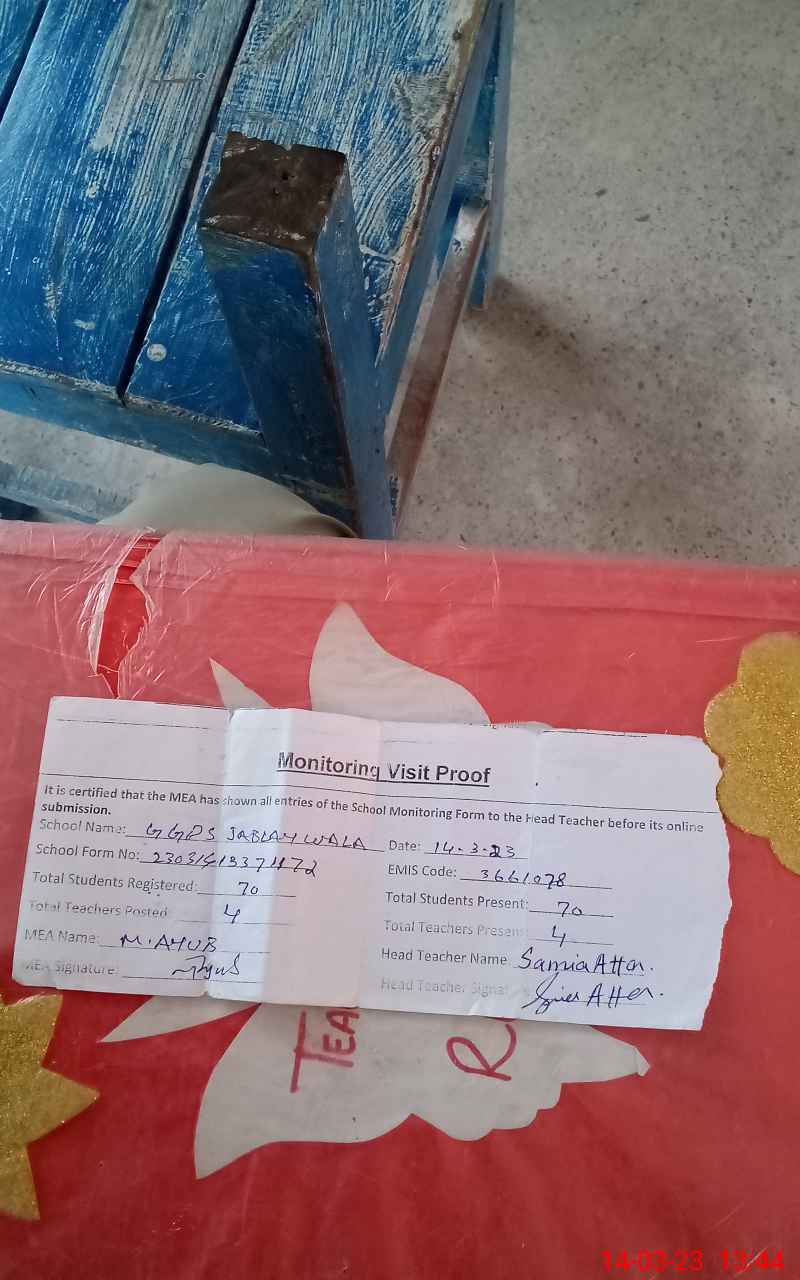 Monitoring Visit Proof
It is certified that the MEA has shown all entries of the School Monitoring Form to the Head Teacher before its online
submission.
School Name: GGPS JABLAY WALA Date: 14-3-23
School Form No: EMIS Code: 3661078
Total Students Registered: 70 Total Students Present: 70
Total Teachers Posted: 4 Total Teachers Present: 4
MEA Name: M.AYUB Head Teacher Name: Samia Atta.
MEA Signature: Ayub Head Teacher Signat
TEA
R
14-03-23 13:44